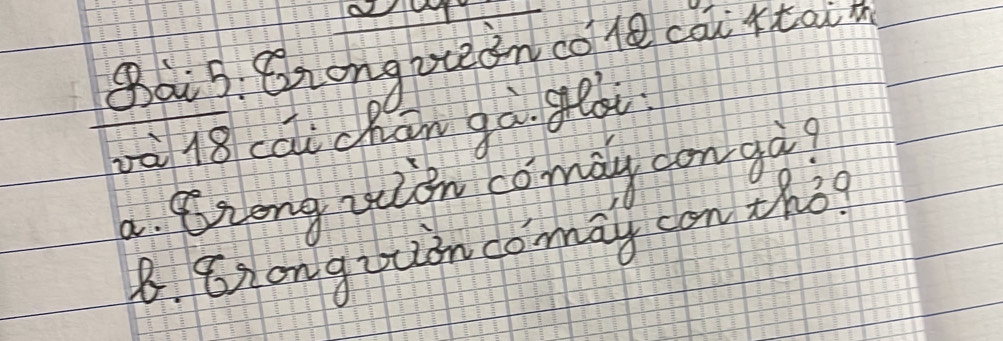 Bài 5. Trong vườn có 18 cái tai th
và 18 cái chân gà. Hỏi:
a. Trong vườn có mấy con gà?
b. Trong vườn có mấy con thỏ?